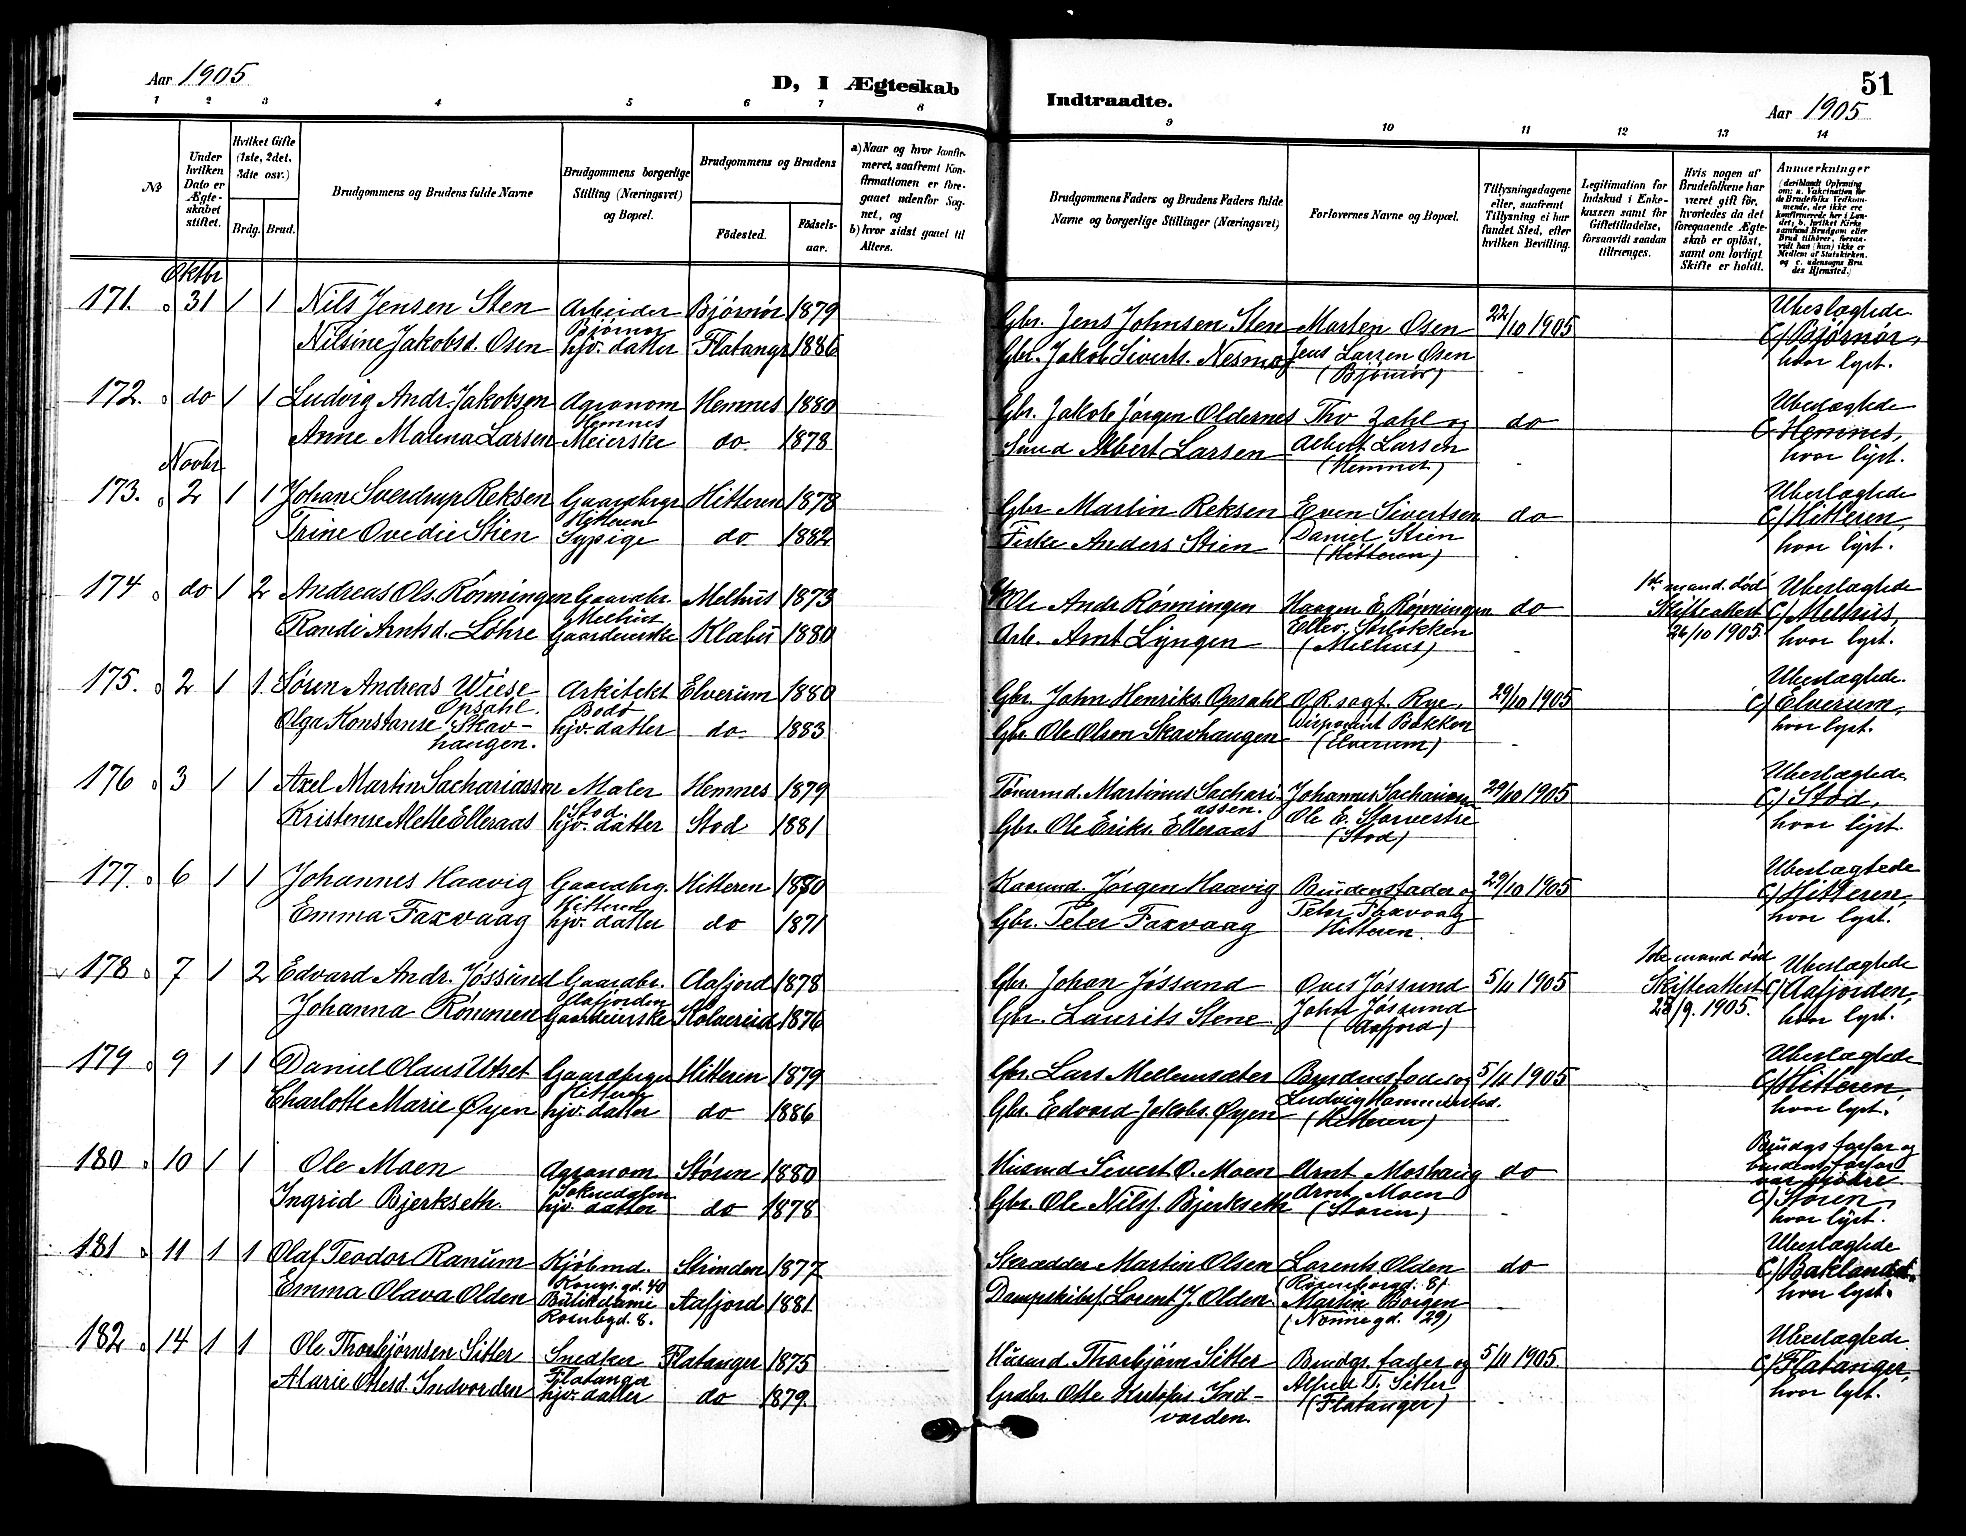 Aar 1905
D, I Ægteskab
Indtraadte.
51
Aar 1905
1 2 3 4 5 6 7 8 9 10 11 12 13 14
No
Under hvilken Dato er Ægteskabet stiftet.
Hvilket Gifte (1ste, 2det, 3die osv.)
Brdg. Brud.
Brudgommens og Brudens fulde Navne
Brudgommens borgerlige Stilling (Næringsvei) og Bopæl.
Brudgommens og Brudens
Födested.
Födselsaar.
a) Naar og hvor konfirmeret, saafremt Konfirmationen er foregaaet udenfor Sognet, og
b) hvor sidst gaaet til Alters.
Brudgommens Faders og Brudens Faders fulde Navne og borgerlige Stillinger (Næringsvei)
Forlovernes Navne og Bopæl.
Tillysningsdagene eller, saafremt Tillysning ei har fundet Sted, efter hvilken Bevilling.
Legitimation for Indskud i Enkekassen samt for Giftetilladelse, forsaavidt saadan tiltrænges.
Hvis nogen af Brudefolkene har været gift för, hvorledes da det foregaaende Ægteskab er oplöst, samt om lovligt Skifte er holdt.
Anmærkninger
Oktbr
171. 31 1 1 Nils Jensen Sten Arbeider Bjørnør 1879 Gbr. Jens Johnsen Sten Morten Osen 22/10 1905 Ubeslægtede
Bjørnør
Nilsine Jakobsd. Osen hjv. datter Flatangr 1886 Gbr. Jakob Siverts. Nesmo Jens Larsen Osen C/ Bjørnør,
(Bjørnør) hvor lyst.
172. do 1 1 Ludvig Andr. Jakobsen Agronom Hemnes 1880 Gbr. Jakob Jørgen Oldernes Thv Zahl og do Ubeslægtede
Hemnes
Anne Malena Larsen Meierske do 1878 Smed Albert Larsen Albert Larsen C/ Hemnes,
(Hemnes) hvor lyst.
Novbr
173. 2 1 1 Johan Sverdrup Reksen Gaardbrgr Hitteren 1878 Gbr Martin Reksen Even Sivertsen do Ubeslægtede
Hitteren
Trine Ovedie Stien Sypige do 1882 Fisker Anders Stien Daniel Stien C/ Hitteren,
(Hitteren) hvor lyst.
174 do 1 2 Andreas Ols. Rønningen Gaardbr. Melhus 1873 Ole Andr Rønningen Haagen E. Rønningen do 1ste mand død Ubeslægtede
Melhus
Randi Arntsd. Løhre Gaardeierske Klæbu 1880 Arb. Arnt Lyngen Skifteattest C/ Melhus,
(Melhus) 26/10 1905. hvor lyst.
175. 2 1 1 Søren Andreas Wiese Arkitekt Elverum 1880 Gbr. John Henriks. Opsahl O.R.sagf. Rye, 29/10 1905 Ubeslægtede
Opsahl. Bodø
Olga Konstanse Skav- hjv. datter do 1883 Gbr. Ole Olsen Skavhaugen Disponent Bakken C/ Elverum,
haugen. (Elverum) hvor lyst.
176 3 1 1 Axel Martin Sachariassen Maler Hemnes 1879 Tømrmd. Martinus Sachari- Johannes Sachariassen 29/10 1905 Ubeslægtede
Stod. assen.
Kristense Mette Elleraas hjv. datter Stod 1881 Gbr. Ole Eriks. Elleraas Ole E. Storvestre C/ Stod,
(Stod) hvor lyst.
177. 6 1 1 Johannes Haavig Gaardbrg. Hitteren 1880 Jørgen Haavig Brudens fader og 29/10 1905 Ubeslægtede
Hitteren
Emma Faxvaag hjv. datter do 1871 Gbr. Peter Faxvaag Petr Faxvaag C/ Hitteren,
Hitteren. hvor lyst.
178 7 1 2 Edvard Andr. Jøssund Gaardbr. Aafjord 1878 Gbr. Johan Jøssund Oves Jøssund 5/11 1905 1ste mand død Ubeslægtede
Aafjorden
Johanna Rømmen Gaardeierske Kolvereid 1876 Gbr. Laurits Stene John Jøssund Skifteattest C/ Aafjorden,
(Aafjord) 25/9. 1905. hvor lyst.
179 9 1 1 Daniel Olaus Utset Gaardbrger Hitteren 1879 Gbr. Lars Mellemsæter Brudens fader og 5/11 1905 Ubeslægtede
Hitteren
Charlotte Marie Øyen hjv. datter do 1886 Gbr. Edvard Jakobs. Øyen Ludvig Hammerstad. C/ Hitteren,
(Hitteren) hvor lyst.
180 10 1 1 Ole Moen Agronom Støren 1880 Husmd Sivert O. Moen Arnt Moshaug do Brudgs farfar og
Soknedalen brudens farfar
Ingrid Bjerkseth. hjv. datter do 1878 Gbr. Ole Nilss. Bjerkseth Arnt Moen var brødre
(Støren) C/ Støren,
hvor lyst.
181 11 1 1 Olaf Teodor Ranum Kjøbmd. Strinden 1877 Skrædder Martin Olsen Lorents Olden do Ubeslægtede
Kongs. gd. 40 (Rosenborgd. 8)
Emma Olava Olden Butikdame Aafjord 1881 Dampskibsf. Lorent J. Olden Martin Borgen C/ Baklandet.
Rosnbgd. 8. (Nonnegd. 29) hvor lyst.
182 14 1 1 Ole Thorbjørnsen Sitter Snedker Flatanger 1875 Husmd Thorbjørn Sitter Brudgs. fader og 5/11 1905. Ubeslægtede
Flatanger
Marie Ottesd. Indvorden hjv. datter do 1879. Grdbr. Otte Kristofrs Ind- Alfred T. Sitter C/ Flatanger,
vorden. (Flatanger) hvor lyst.